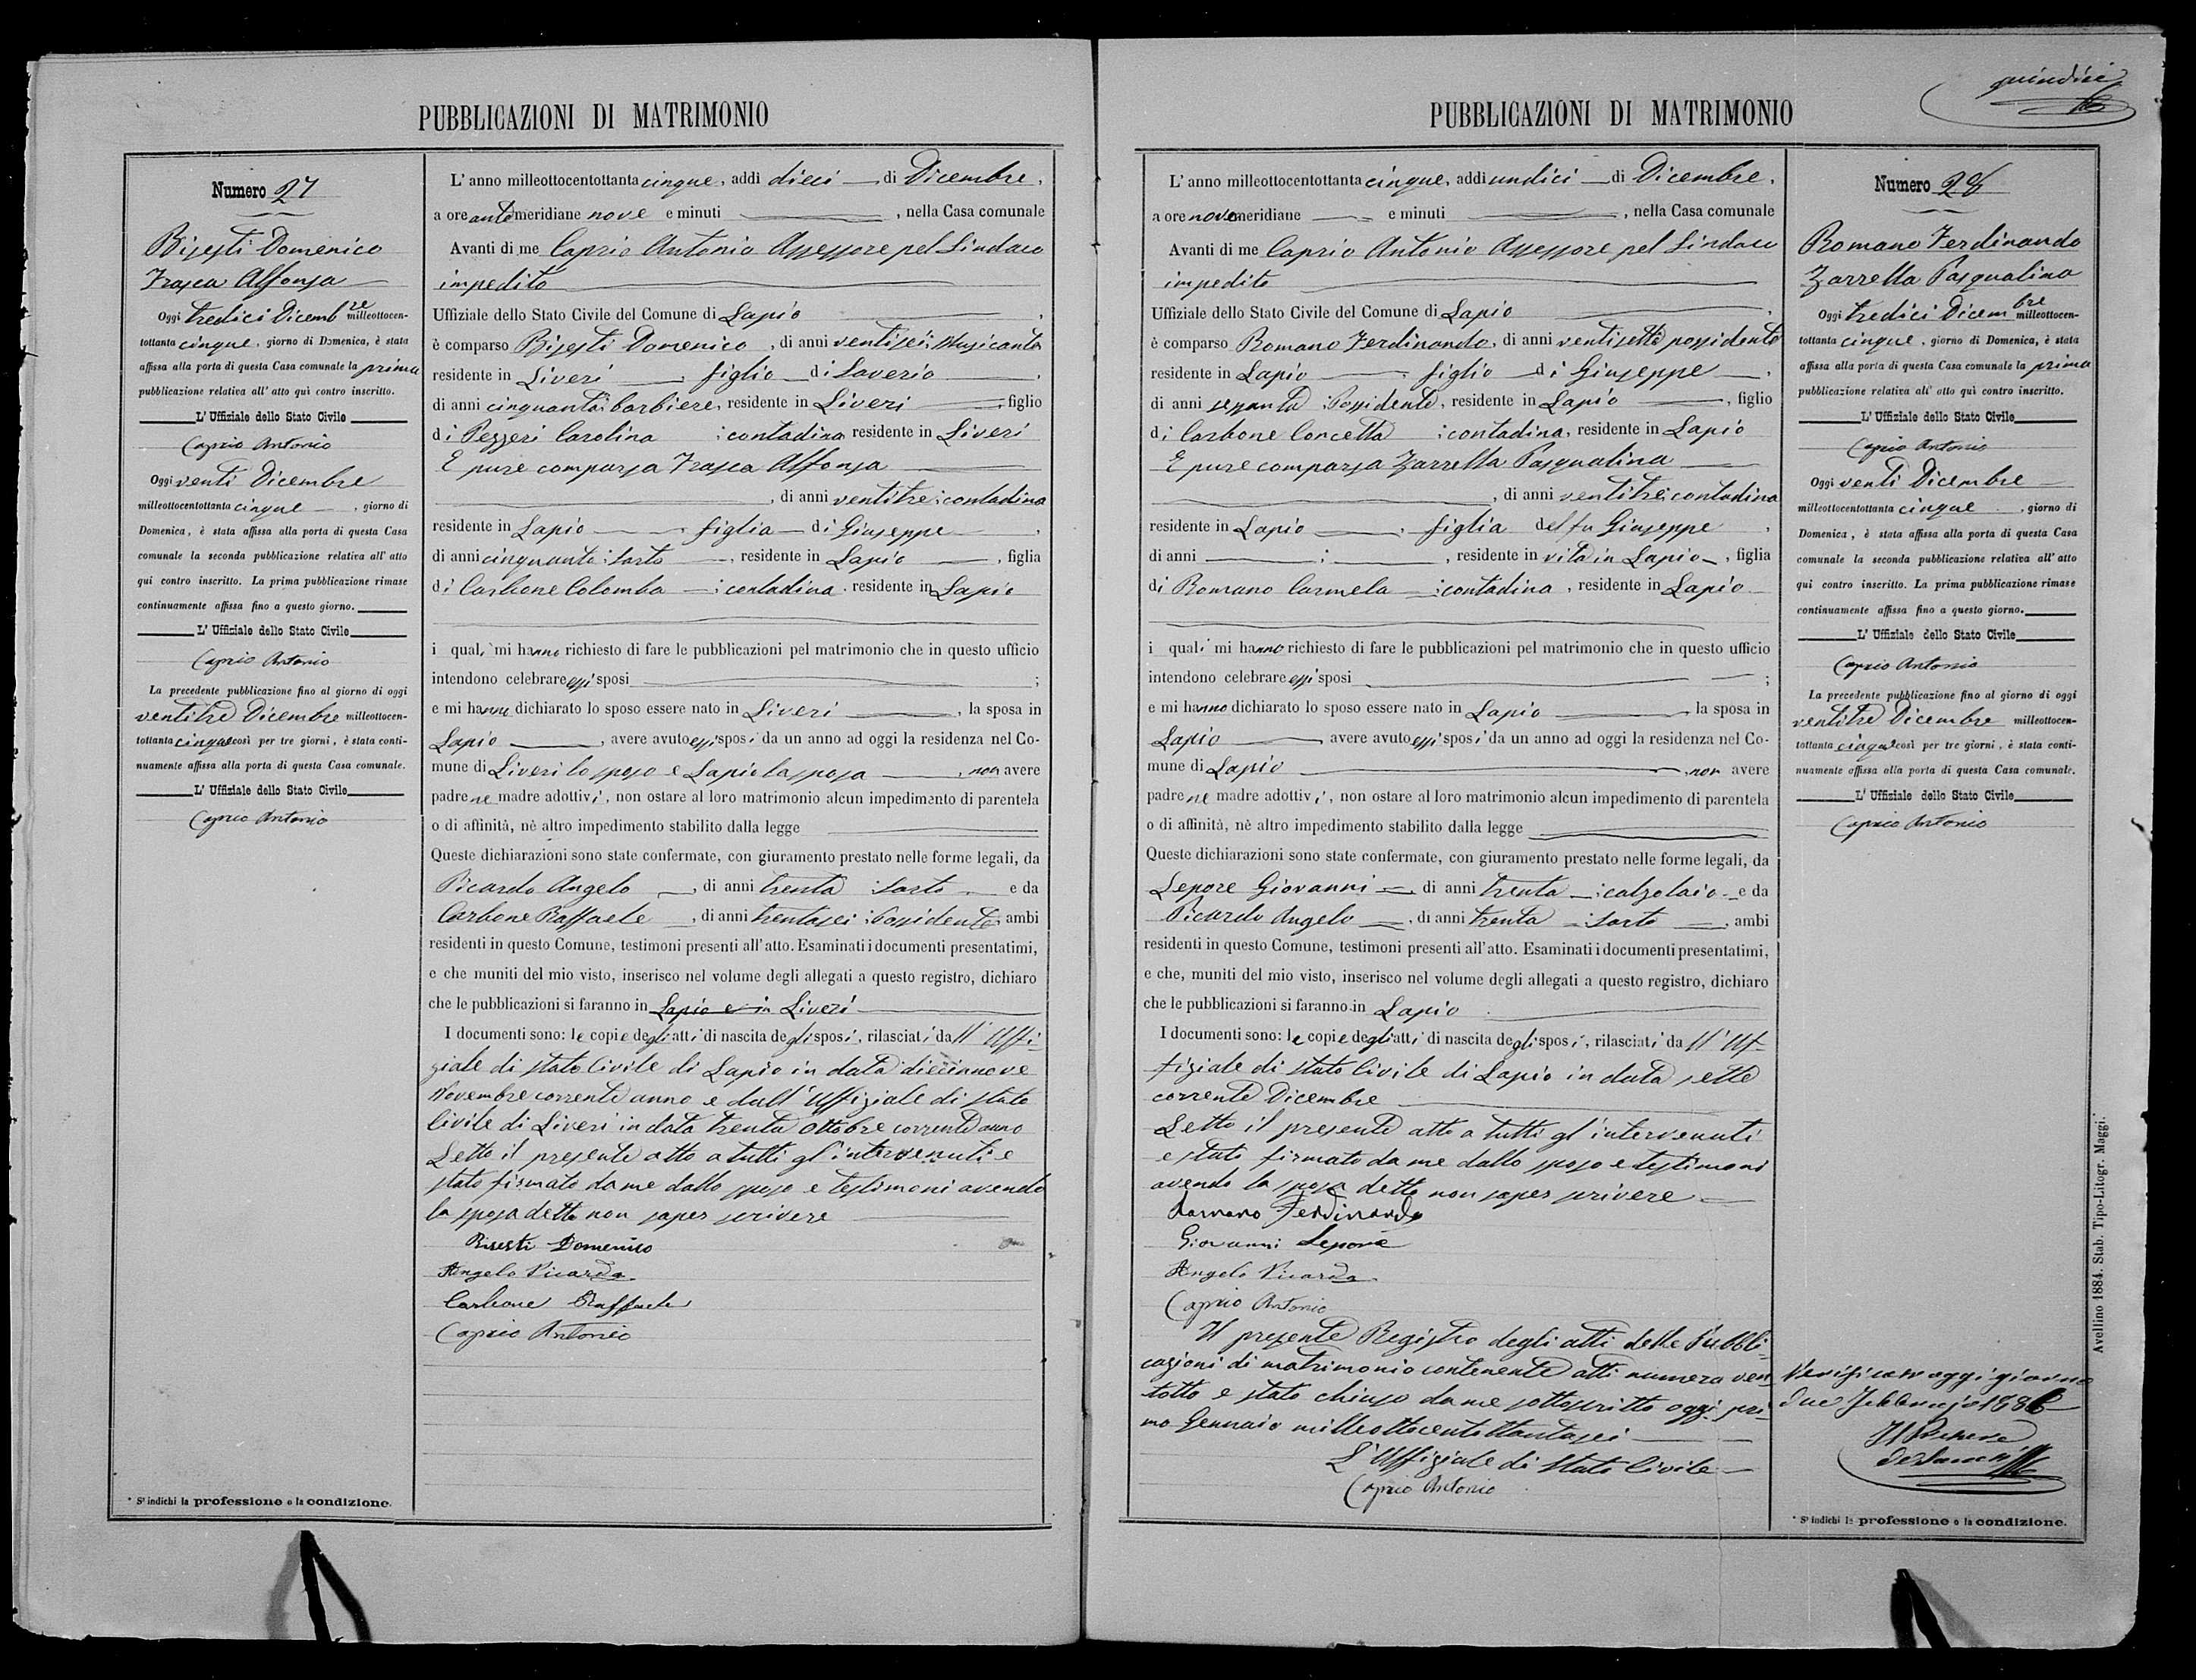 PUBBLICAZIONI DI MATRIMONIO
Numero 27
Bisesti Domenico
Frasca Alfonsa
Oggi tredici Dicembre milleottocen-
tottanta cinque, giorno di Domenica, è stata
affissa alla porta di questa Casa comunale la prima
pubblicazione relativa all' atto quì contro inscritto.
L' Uffiziale dello Stato Civile
Caprio Antonio
Oggi venti Dicembre
milleottocentottanta cinque, giorno di
Domenica, è stata affissa alla porta di questa Casa
comunale la seconda pubblicazione relativa all' atto
quì contro inscritto. La prima pubblicazione rimase
continuamente affissa fino a questo giorno.
L' Uffiziale dello Stato Civile
Caprio Antonio
La precedente pubblicazione fino al giorno di oggi
ventitre Dicembre milleottocen-
tottanta cinque così per tre giorni, è stata conti-
nuamente affissa alla porta di questa Casa comunale.
L' Uffiziale dello Stato Civile
Caprio Antonio
* Si indichi la professione o la condizione.
L' anno milleottocentottanta cinque, addì dieci di Dicembre,
a ore antimeridiane nove e minuti , nella Casa comunale
Avanti di me Caprio Antonio Assessore pel Sindaco
impedito
Uffiziale dello Stato Civile del Comune di Lapio
è comparso Bisesti Domenico, di anni ventisei; Musicante
residente in Liveri, figlio di Saverio,
di anni cinquanta; barbiere, residente in Liveri; figlio
di Pezzeri Carolina; contadina residente in Liveri
E pure comparsa Frasca Alfonsa
, di anni ventitre; contadina
residente in Lapio, figlia di Giuseppe,
di anni cinquanta; sarto, residente in Lapio, figlia
di Carbone Colomba; contadina, residente in Lapio
i quali mi hanno richiesto di fare le pubblicazioni pel matrimonio che in questo ufficio
intendono celebrare essi sposi;
e mi hanno dichiarato lo sposo essere nato in Liveri, la sposa in
Lapio, avere avuto essi sposi da un anno ad oggi la residenza nel Co-
mune di Liveri lo sposo e Lapio la sposa, non avere
padre ne madre adottivi, non ostare al loro matrimonio alcun impedimento di parentela
o di affinità, nè altro impedimento stabilito dalla legge
Queste dichiarazioni sono state confermate, con giuramento prestato nelle forme legali, da
Picardo Angelo, di anni trenta; sarto e da
Carbone Raffaele, di anni trentasei; Possidente, ambi
residenti in questo Comune, testimoni presenti all' atto. Esaminati i documenti presentatimi,
e che muniti del mio visto, inserisco nel volume degli allegati a questo registro, dichiaro
che le pubblicazioni si faranno in Lapio e in Liveri
I documenti sono: le copie degli atti di nascita degli sposi, rilasciati da ll' Uffi-
ziale di stato Civile di Lapio in data diecinnove
Novembre corrente anno e dall' Uffiziale di stato
Civile di Liveri in data trenta ottobre corrente anno
Letto il presente atto a tutti gl' intervenuti e
stato firmato da me dallo sposo e testimoni avendo
la sposa detto non saper scrivere
Bisesti Domenico
Angelo Picarda
Carbone Raffaele
Caprio Antonio
quindici
PUBBLICAZIONI DI MATRIMONIO
L' anno milleottocentottanta cinque, addì undici di Dicembre,
a ore nove meridiane e minuti , nella Casa comunale
Avanti di me Caprio Antonio Assessore pel Sindaco
impedito
Uffiziale dello Stato Civile del Comune di Lapio
è comparso Romano Ferdinando, di anni ventisette possidente
residente in Lapio, figlio di Giuseppe,
di anni sessanta; Possidente, residente in Lapio, figlio
di Carbone Concetta; contadina, residente in Lapio
E pure comparsa Zarrella Pasqualina
, di anni ventitre; contadina
residente in Lapio, figlia del fu Giuseppe,
di anni ; , residente in vita in Lapio, figlia
di Romano Carmela; contadina, residente in Lapio
i quali mi hanno richiesto di fare le pubblicazioni pel matrimonio che in questo ufficio
intendono celebrare essi sposi;
e mi hanno dichiarato lo sposo essere nato in Lapio, la sposa in
Lapio, avere avuto essi sposi da un anno ad oggi la residenza nel Co-
mune di Lapio, non avere
padre ne madre adottivi, non ostare al loro matrimonio alcun impedimento di parentela
o di affinità, nè altro impedimento stabilito dalla legge
Queste dichiarazioni sono state confermate, con giuramento prestato nelle forme legali, da
Lepore Giovanni, di anni trenta; calzolaio e da
Picardo Angelo, di anni trenta; sarto, ambi
residenti in questo Comune, testimoni presenti all' atto. Esaminati i documenti presentatimi,
e che, muniti del mio visto, inserisco nel volume degli allegati a questo registro, dichiaro
che le pubblicazioni si faranno in Lapio
I documenti sono: le copie degli atti di nascita degli sposi, rilasciati da ll' Uf-
fiziale di stato Civile di Lapio in data sette
corrente Dicembre
Letto il presente atto a tutti gl' intervenuti
e stato firmato da me dallo sposo e testimoni
avendo la sposa detto non saper scrivere
Romano Ferdinando
Giovanni Lepore
Angelo Picarda
Caprio Antonio
Il presente Registro degli atti delle Pubbli-
cazioni di matrimonio contenente atti numero ven-
totto e stato chiuso da me sottoscritto oggi pri-
mo Gennaio milleottocentottantasei
L' Uffiziale di Stato Civile
Caprio Antonio
Numero 28
Romano Ferdinando
Zarrella Pasqualina
Oggi tredici Dicembre milleottocen-
tottanta cinque, giorno di Domenica, è stata
affissa alla porta di questa Casa comunale la prima
pubblicazione relativa all' atto quì contro inscritto.
L' Uffiziale dello Stato Civile
Caprio Antonio
Oggi venti Dicembre
milleottocentottanta cinque, giorno di
Domenica, è stata affissa alla porta di questa Casa
comunale la seconda pubblicazione relativa all' atto
quì contro inscritto. La prima pubblicazione rimase
continuamente affissa fino a questo giorno.
L' Uffiziale dello Stato Civile
Caprio Antonio
La precedente pubblicazione fino al giorno di oggi
ventitre Dicembre milleottocen-
tottanta cinque così per tre giorni, è stata conti-
nuamente affissa alla porta di questa Casa comunale.
L' Uffiziale dello Stato Civile
Caprio Antonio
oggi giorno
due Febbrajo 1886
Il Pretore
* Si indichi la professione o la condizione.
Avellino 1884. Stab. Tipo-Litogr. Maggi.